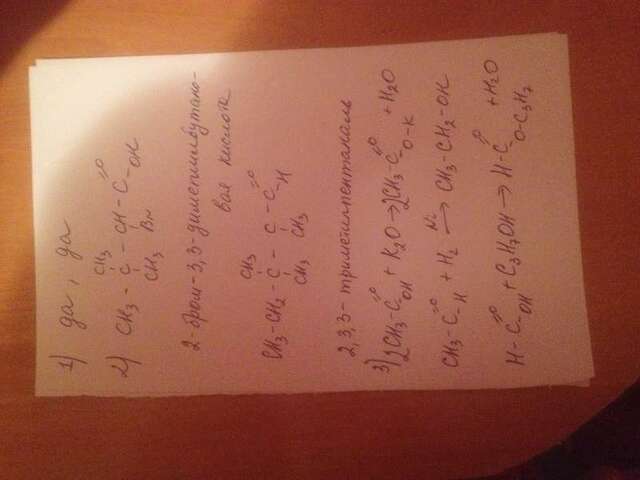 1) да, да
CH3
2) CH3 - C - CH - C =O - OH
CH3 Br
2-бром-3,3-диметилбутано-
вая кислота
CH3
CH3-CH2 - C - C - C =O - H
CH3 CH3
2,3,3-триметилпентаналь
3) 2CH3-C =O - OH + K2O → 2CH3-C =O - O-K + H2O
CH3-C =O - H + H2 Ni → CH3-CH2-OH
H-C =O - OH + C3H7OH → H-C =O - O-C3H7 + H2O